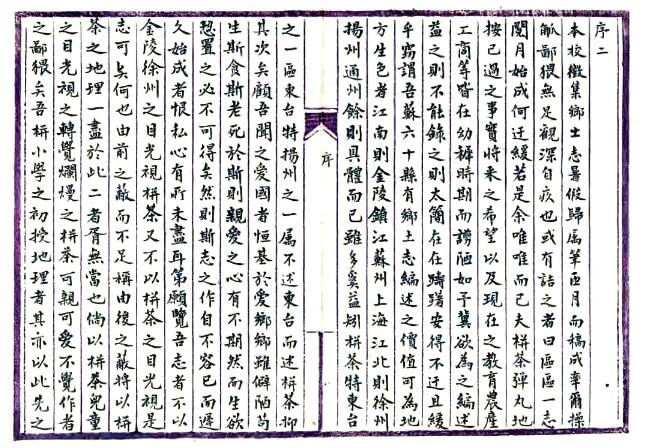 序二
本校徵集鄉土志暑假歸属筆匝月而稿成率爾操
觚鄙猥無足觀深自疚也或有詰之者曰區區一志
閱月始成何迂緩若是余唯唯而已夫栟茶彈丸地
按已過之事實將來之希望以及現在之教育農產
工商等皆在幼稺時期而譾陋如予冀欲為之編述
益之則不能錄之則太簡在在躊躇安得不迂且緩
乎竊謂吾蘇六十縣有鄉土志編述之價值可為地
方生色者江南則金陵鎮江蘇州上海江北則徐州
揚州通州餘則具體而已雖多奚益矧栟茶特東台
序
之一區東台特揚州之一属不述東台而述栟茶抑
其次矣顧吾聞之愛國者恒基於愛鄉鄉雖僻陋苟
生斯食斯老死於斯則親愛之心有不期然而生欲
恝置之必不可得矣然則斯志之作自不容已而遲
久始成者恨私心有所未盡耳第願覽吾志者不以
金陵徐州之目光視栟茶又不以栟茶之目光視是
志可矣何也由前之蔽而不足稱由後之蔽將以栟
茶之地理一盡於此二者胥無當也倘以栟茶兒童
之目光視之轉覺爛熳之栟茶可親可愛不覺作者
之鄙猥矣吾栟小學之初授地理者其亦以此先之